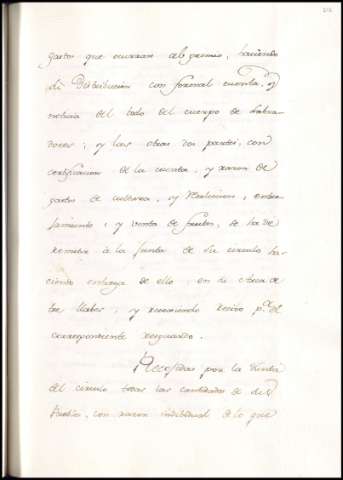 gastos que ocurran al gremio, haciendo
su Distribucion con formal cuenta, y
noticia del todo del cuerpo de Labra
dores; y las otras dos partes, con
certificacion de la cuenta, y razon de
gastos de cosecha, y
y venta de frutos, se ha de
remitir à la Junta de su circulo ha
ciendo entrega de ello, en su Arca de
tres llaves; y recogiendo recibo p.ª el
correspondiente resguardo.
Recogidas por la Junta
del circulo todas las cantidades de sus
Pueblos, con razon individual de lo que